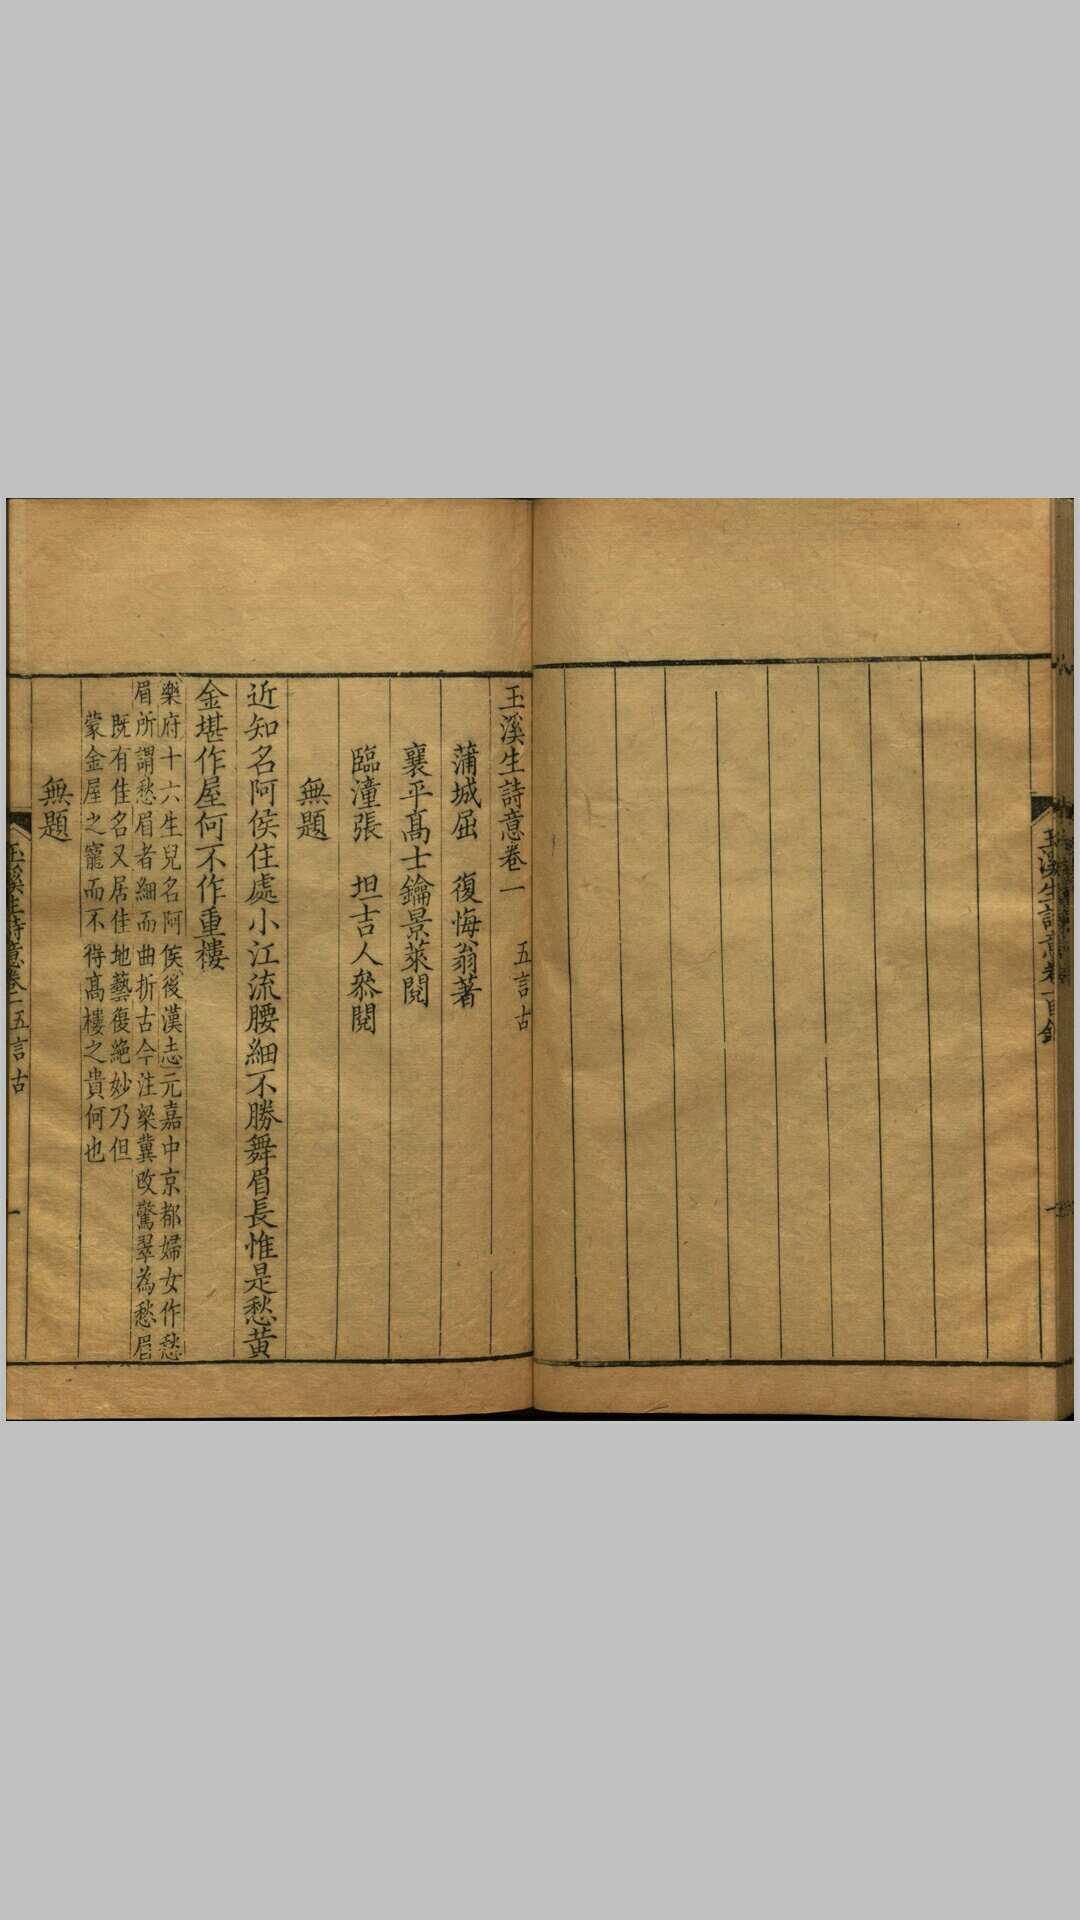 玉溪生詩意卷一目錄
玉溪生詩意卷一　五言古
蒲城屈　復悔翁著
襄平髙士鑰景萊閱
臨潼張　坦吉人叅閱
無題
近知名阿侯住處小江流腰細不勝舞眉長惟是愁黃
金堪作屋何不作重樓
樂府十六生兒名阿侯後漢志元嘉中京都婦女作愁
眉所謂愁眉者細而曲折古今注梁冀改驚翠為愁眉
既有佳名又居佳地藝復絶妙乃但
蒙金屋之寵而不得髙樓之貴何也
無題
玉溪生詩意卷一五言古　一